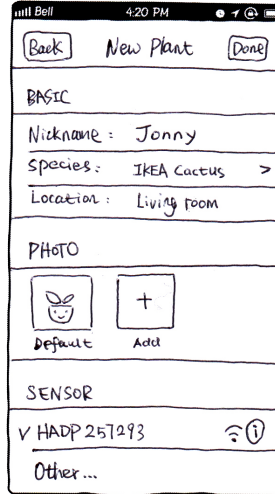 Bell 4:20 PM
Back New Plant Done
BASIC
Nickname: Jonny
Species: IKEA Cactus >
Location: Living room
PHOTO
+
Default Add
SENSOR
✓ HADP 257293 i
Other...